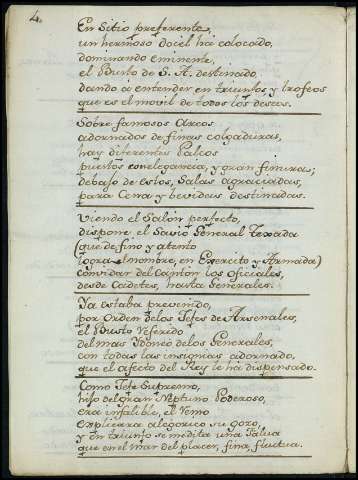 4.
En Sitio preferente,
un hermoso docèl ha colocado,
dominando eminente,
el Busto de S. A. destinado
dando à entender en triunfos y trofeos
que es el movil de todos los deseos.
Sobre famosos Arcos
adornados de finas colgaduras,
hay diferentes Palcos
puestos con elegancia, y gran finura;
debajo de estos, Salas agraciadas,
para Cena y bevidas destinadas.
Viendo el Salòn perfecto,
dispone el Savio General Texada
(que de fino y atento
logra el nombre, en Exercito y Armada)
convidar del Cantòn los oficiales,
desde Cadetes, hasta Generales.
Ya estaba prevenido,
por orden de los Jefes de Arsenales,
el Busto referido
del mas Ydoneo de los Generales,
con todas las insignias adornado,
que el afecto del Rey le ha dispensado.
Como Jefe Supremo,
hijo del gran Neptuno Poderoso,
era infalible, el Remo
explicara alegorico su gozo,
y en triunfo se medita una Falua
que en el mar del placer, fina, fluctua.